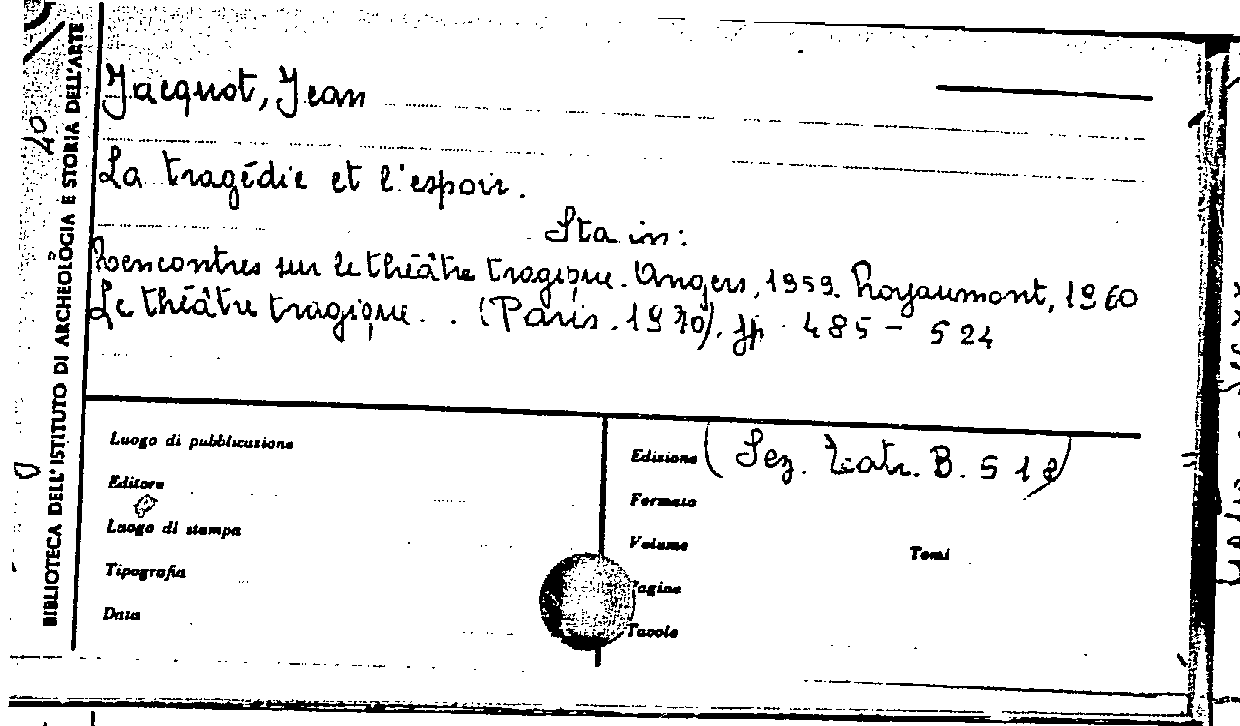 BIBLIOTECA DELL'ISTITUTO DI ARCHEOLOGIA E STORIA DELL'ARTE
Jacquot, Jean
La tragédie et l'espoir.
Sta in:
Rencontres sur le théâtre tragique. Angers, 1959. Royaumont, 1960
Le théâtre tragique.. (Paris.1970). pp. 485-524
Luogo di pubblicazione
Editore
Luogo di stampa
Tipografia
Data
Edizione (Sez. Teatr. B. 512)
Formato
Volume Tomi
Pagine
Tavole